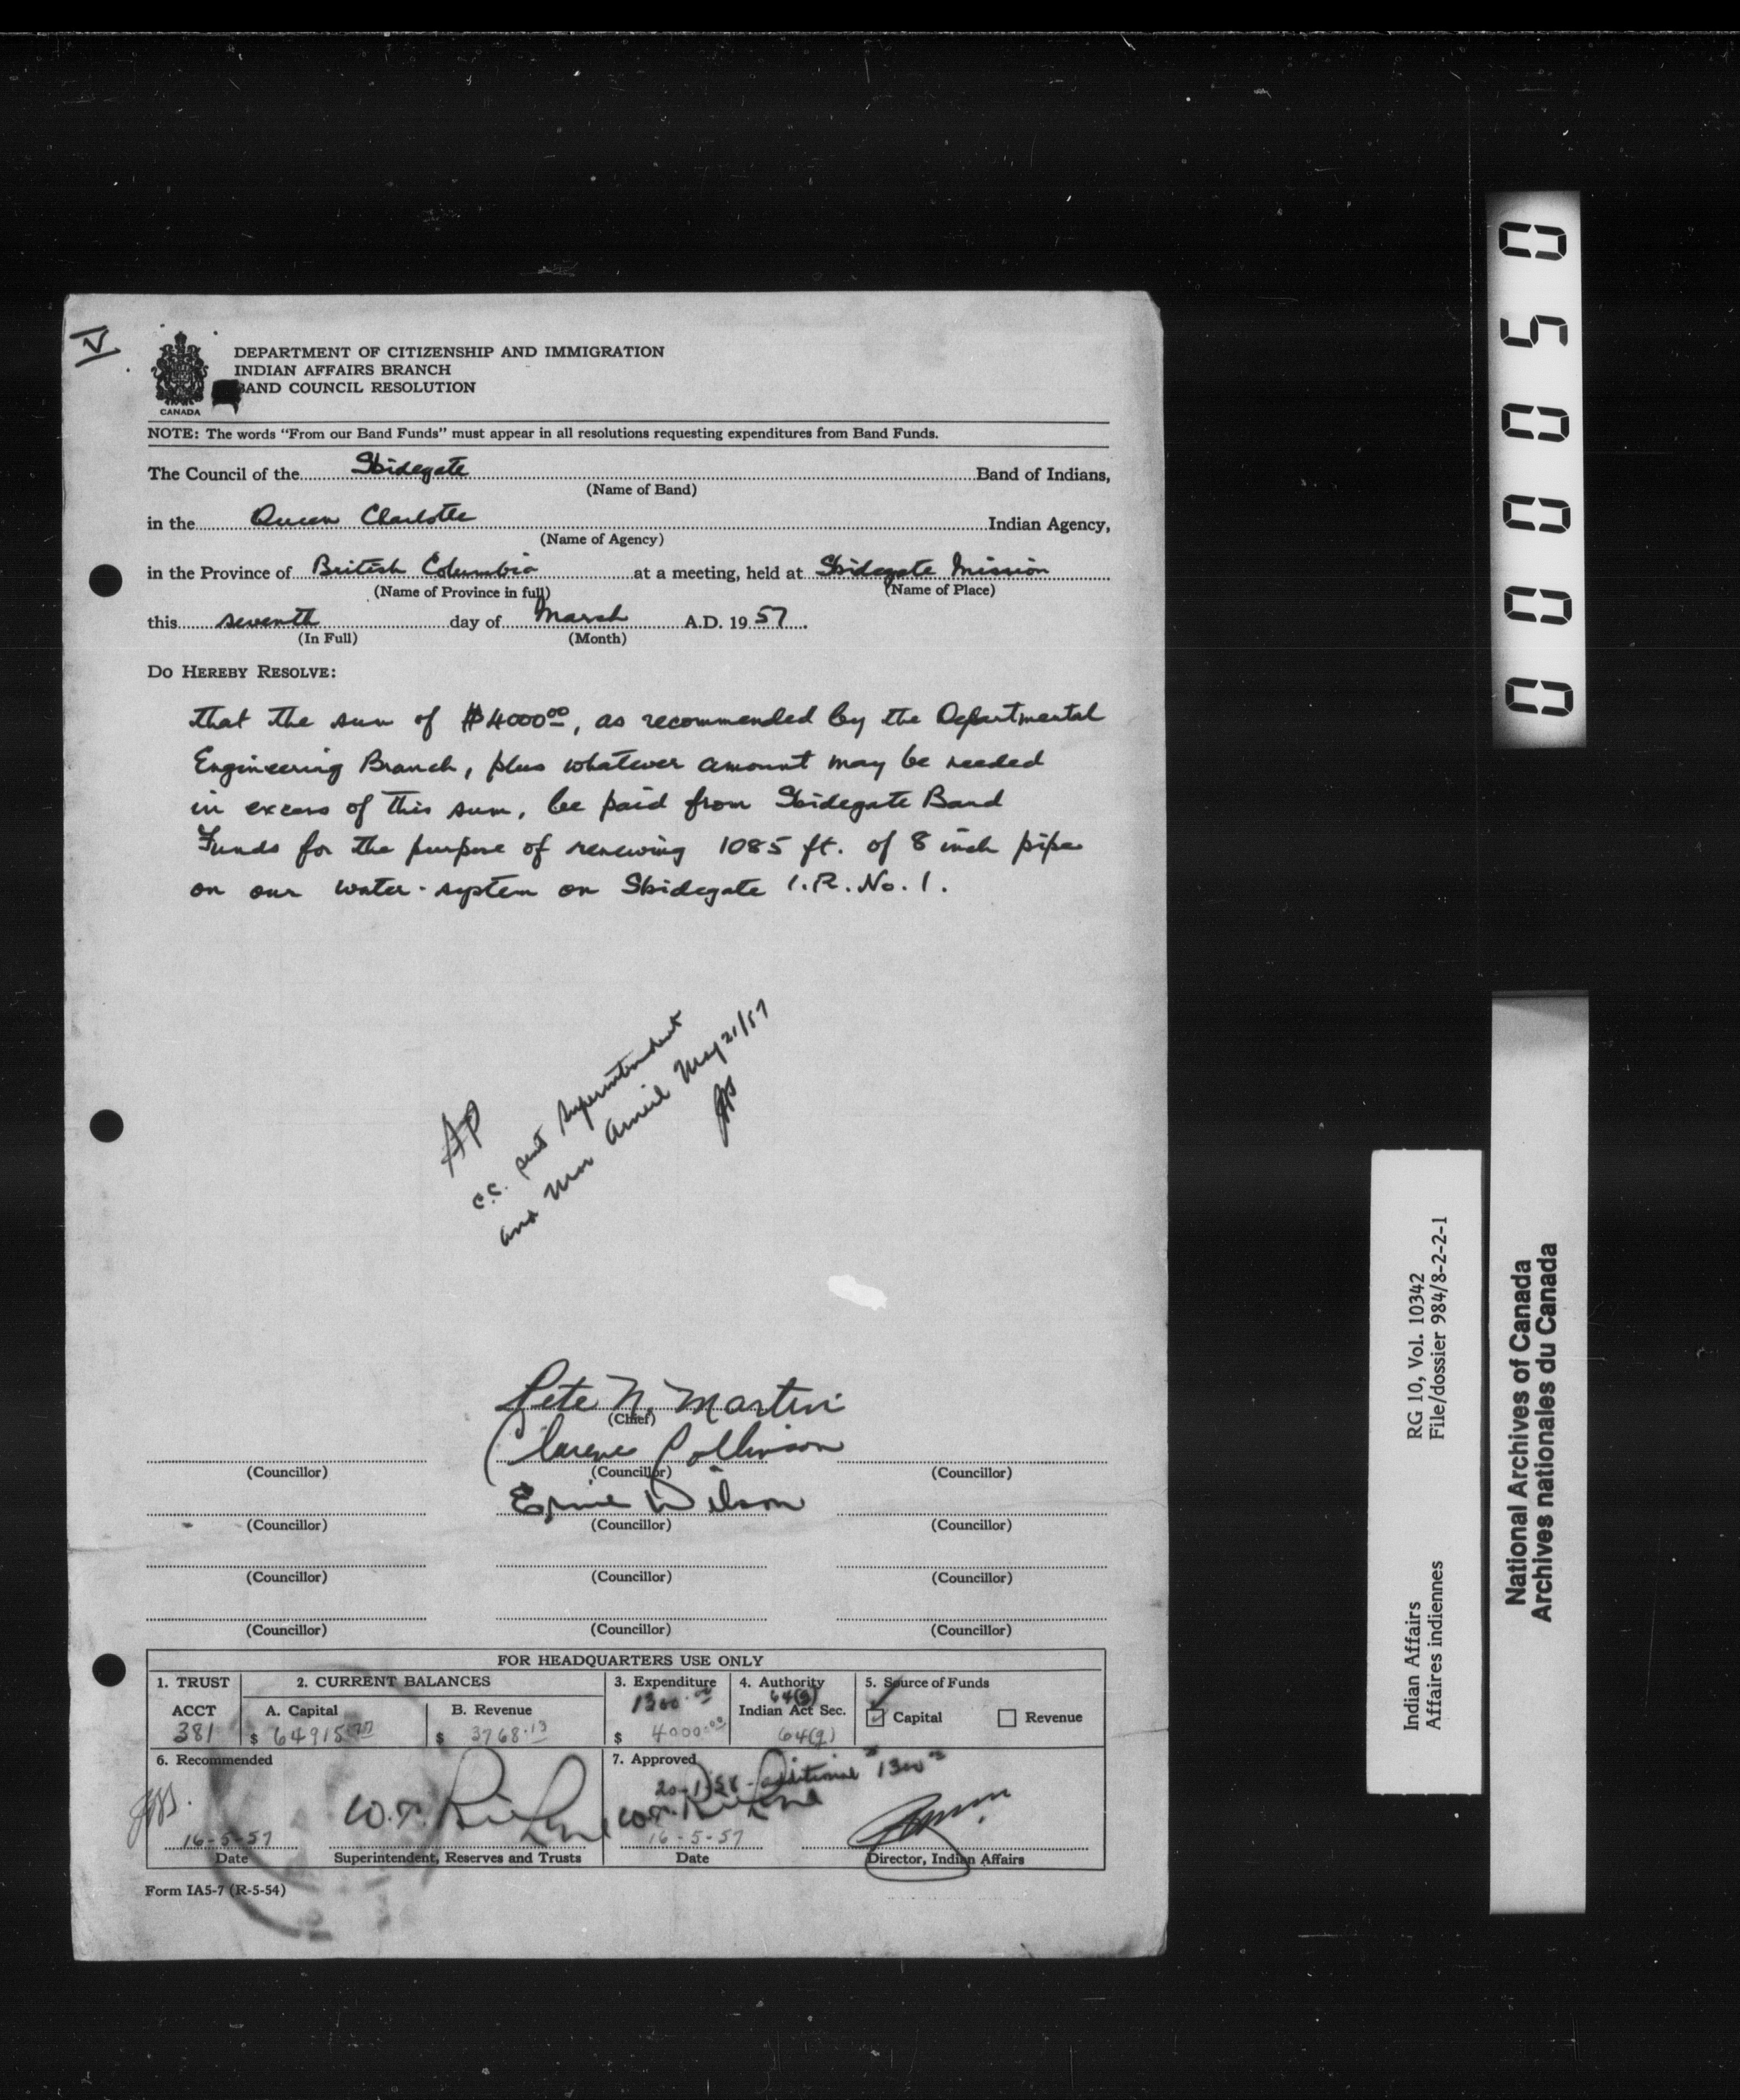 DEPARTMENT OF CITIZENSHIP AND IMMIGRATION
INDIAN AFFAIRS BRANCH
BAND COUNCIL RESOLUTION
CANADA
NOTE: The words “From our Band Funds” must appear in all resolutions requesting expenditures from Band Funds.
The Council of the Skidegate Band of Indians,
(Name of Band)
in the Queen Charlotte Indian Agency,
(Name of Agency)
in the Province of British Columbia at a meeting, held at Skidegate Mission
(Name of Province in full) (Name of Place)
this seventh day of March A.D. 19 57.
(In Full) (Month)
DO HEREBY RESOLVE:
that the sum of $4000 00, as recommended by the Departmental
Engineering Branch, plus whatever amount may be needed
in excess of this sum, be paid from Skidegate Band
Funds for the purpose of renewing 1085 ft. of 8 inch pipe
on our water-system on Skidegate I.R. No. 1.
AP
c.c. sent Superintendent
and May 21/57
Pete N. Martin
(Chief)
Clarence Collinson
(Councillor) (Councillor) (Councillor)
Ernie Wilson
(Councillor) (Councillor) (Councillor)
(Councillor) (Councillor) (Councillor)
(Councillor) (Councillor) (Councillor)
FOR HEADQUARTERS USE ONLY
1. TRUST 2. CURRENT BALANCES 3. Expenditure 4. Authority 5. Source of Funds
1300.00 64(g)
ACCT A. Capital B. Revenue Indian Act Sec. Capital Revenue
381 $ 64915 $ 3768.13 $ 4000.00 64(g)
6. Recommended 7. Approved
additional 1300
16-5-57 16-5-57
Date Superintendent, Reserves and Trusts Date Director, Indian Affairs
Form IA5-7 (R-5-54)
000050
Indian Affairs RG 10, Vol. 10342
Affaires indiennes File/dossier 984/8-2-2-1
National Archives of Canada
Archives nationales du Canada